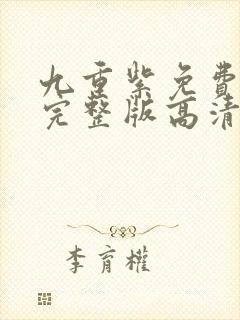 九重紫免費
完整版高清
李育權